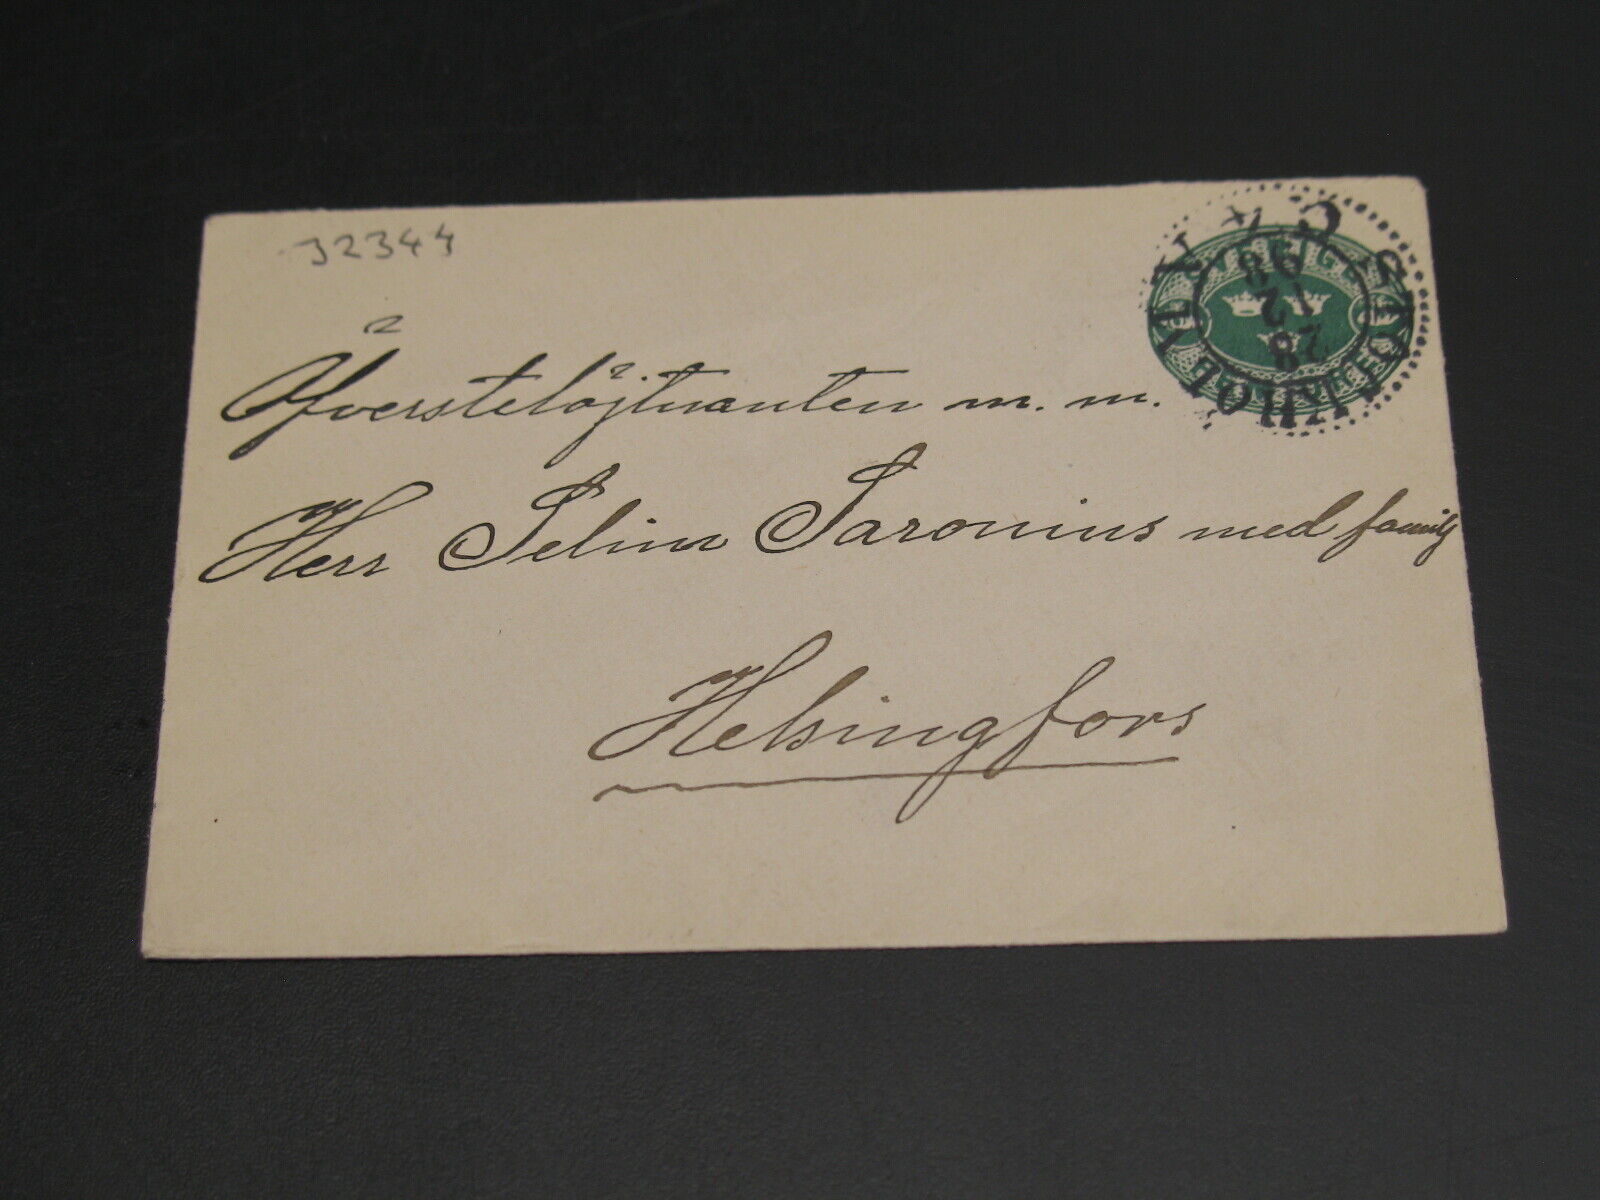 J2344
Öfverstelöjtnanten m. m.
Herr Selim Saronius med familj
Helsingfors
STOCKHOLM
28
12
98